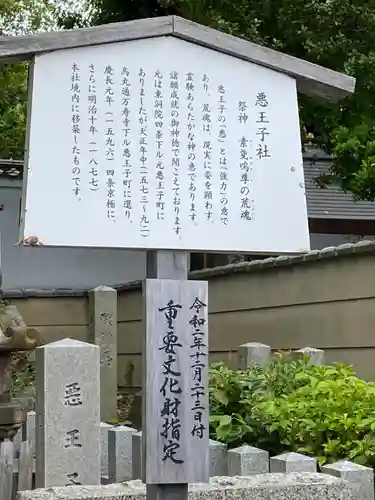 悪王子社
祭神 素戔嗚尊の荒魂
悪王子の「悪」とは「強力」の意で
あり、荒魂は、現実に姿を顕わす、
霊験あらたかな神の意であります。
諸願成就の御神徳で聞こえております。
元は東洞院四条下ル元悪王子町に
ありましたが天正年中(一五七三〜九二)
烏丸通万寿寺下ル悪王子町に遷り、
慶長元年(一五九六)四条京極に、
さらに明治十年(一八七七)
本社境内に移築したものです。
令和二年十二月二十三日付
重要文化財指定
悪王子